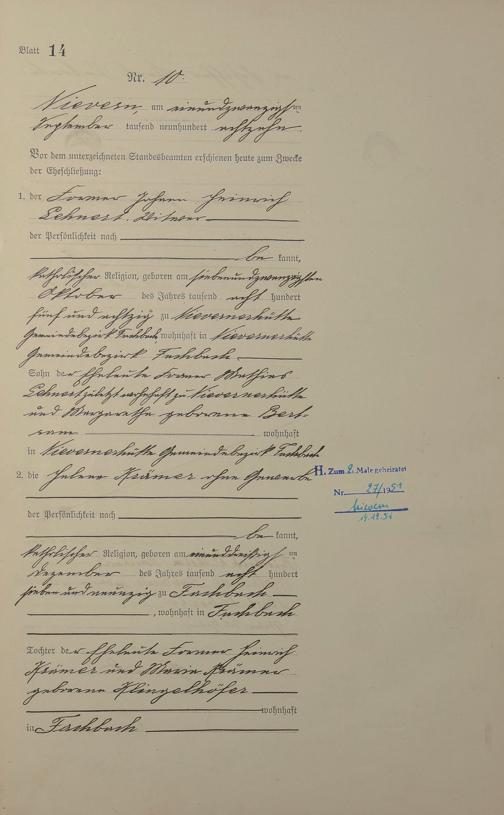 Blatt 14
Nr. 10.
Nievern, am einundzwanzigsten
September tausend neunhundert achtzehn
Vor dem unterzeichneten Standesbeamten erschienen heute zum Zwecke
der Eheschließung:
1. der Former Johann Heinrich
Lehnert, Witwer
der Persönlichkeit nach
be kannt,
katholischer Religion, geboren am siebenundzwanzigsten
Oktober des Jahres tausend acht hundert
fünf und achtzig zu Nievernerhütte
Gemeindebezirk Fachbach wohnhaft in Nievernerhütte
Gemeindebezirk Fachbach.
Sohn der Eheleute Former Mathias
Lehnert zuletzt wohnhaft zu Nievernerhütte
und Margarethe geborene Bert-
ram wohnhaft
in Nievernerhütte Gemeindebezirk Fachbach
2. die Helene Krämer ohne Gewerbe
der Persönlichkeit nach
be kannt,
katholischer Religion, geboren am
Dezember des Jahres tausend acht hundert
sieben und neunzig zu Fachbach
, wohnhaft in Fachbach
Tochter der Eheleute Former Heinrich
Krämer und Maria Krämer
geborene Klingelhöfer
wohnhaft
in Fachbach
H. Zum 2. Male geheiratet
Nr. 27/1951
Nievern